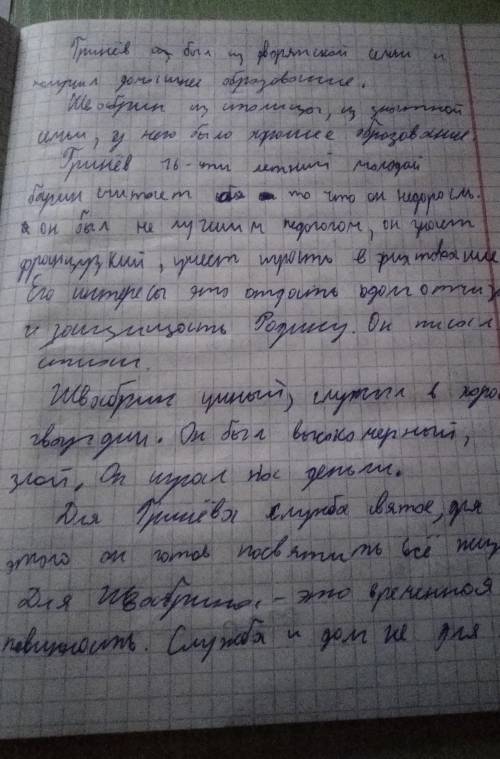 Гринёв был из дворянской семьи и
получил домашнее образование.
Швабрин из столицы, из знатной
семьи, у него было хорошее образование.
Гринёв 16-ти летний молодой
барин считает то что он недоросль.
он был не лучшим педогогом, он знает
француzский, умеет играть в фихтование
Его интересы это отдать одолг отчиз
и защищать Родину. Он писал
стихи.
Швабрин умный, служил в хоро
гвардии. Он был высокомерный,
злой, Он играл на деньги.
Для Гринёва служба святое, для
этого он готов посвятить всё жиз
Для Швабрина - это временная
повинность. Служба и долг не для